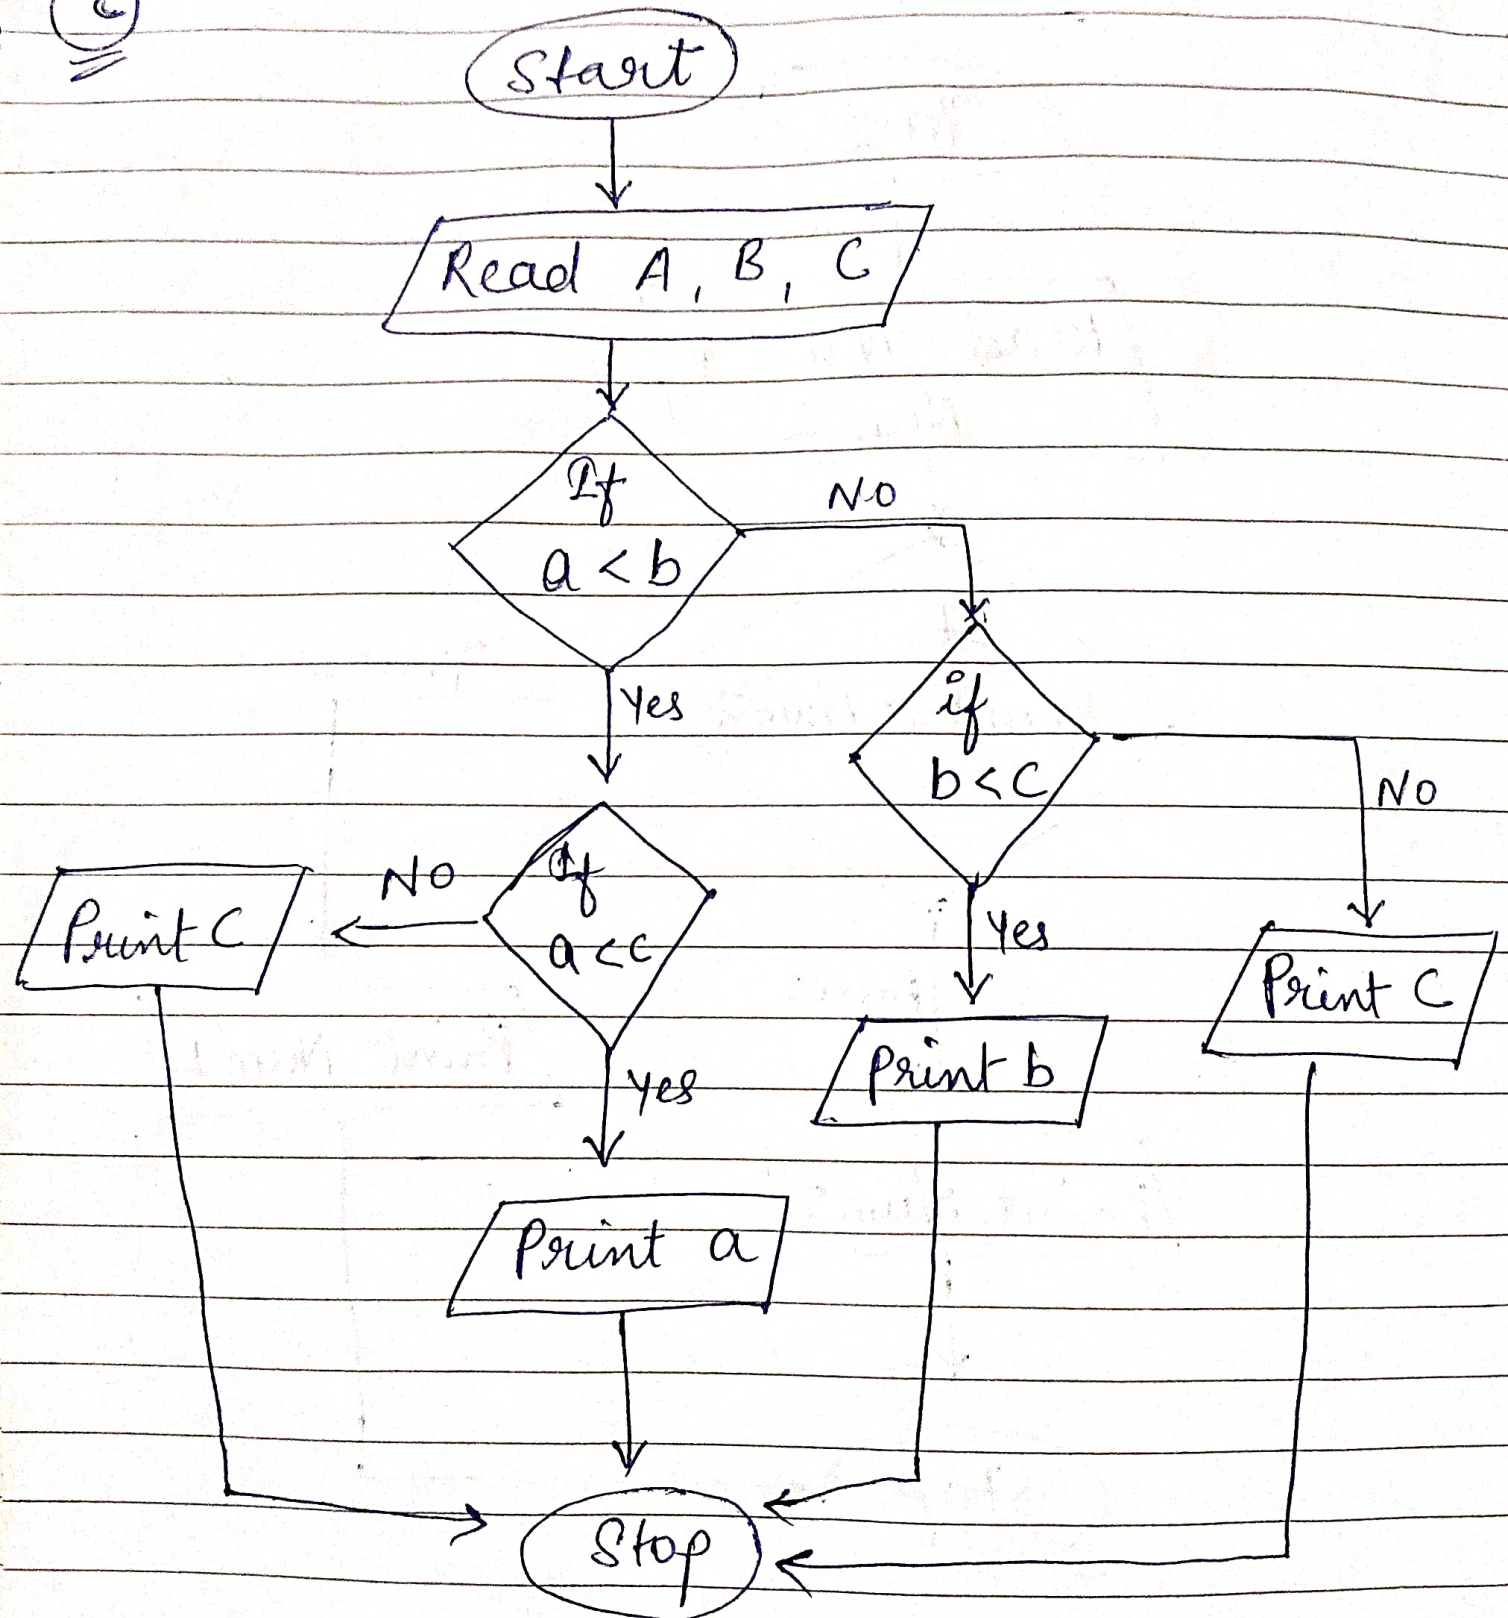 Start
Read A, B, C
If
a < b
NO
Yes
if
b < C
NO
If
a < c
NO
Print C
Yes
Print C
Yes
Print b
Print a
Stop